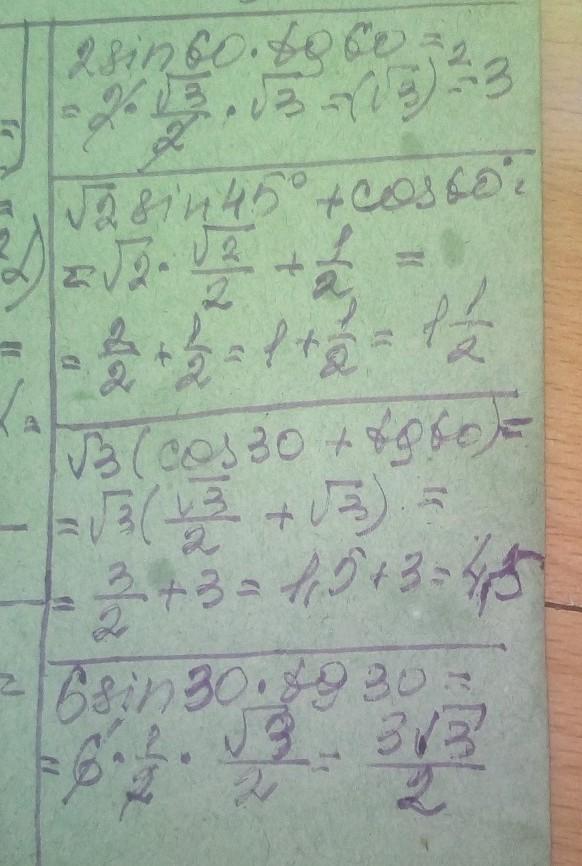 2sin60·tg60=
=2·√3/2·√3=(√3)²=3
√2sin45°+cos60°=
=√2·√2/2+1/2=
=2/2+1/2=1+1/2=1 1/2
√3(cos30+tg60)=
=√3(√3/2+√3)=
=3/2+3=1,5+3=4,5
6sin30·tg30=
=6·1/2·√3/2=3√3/2